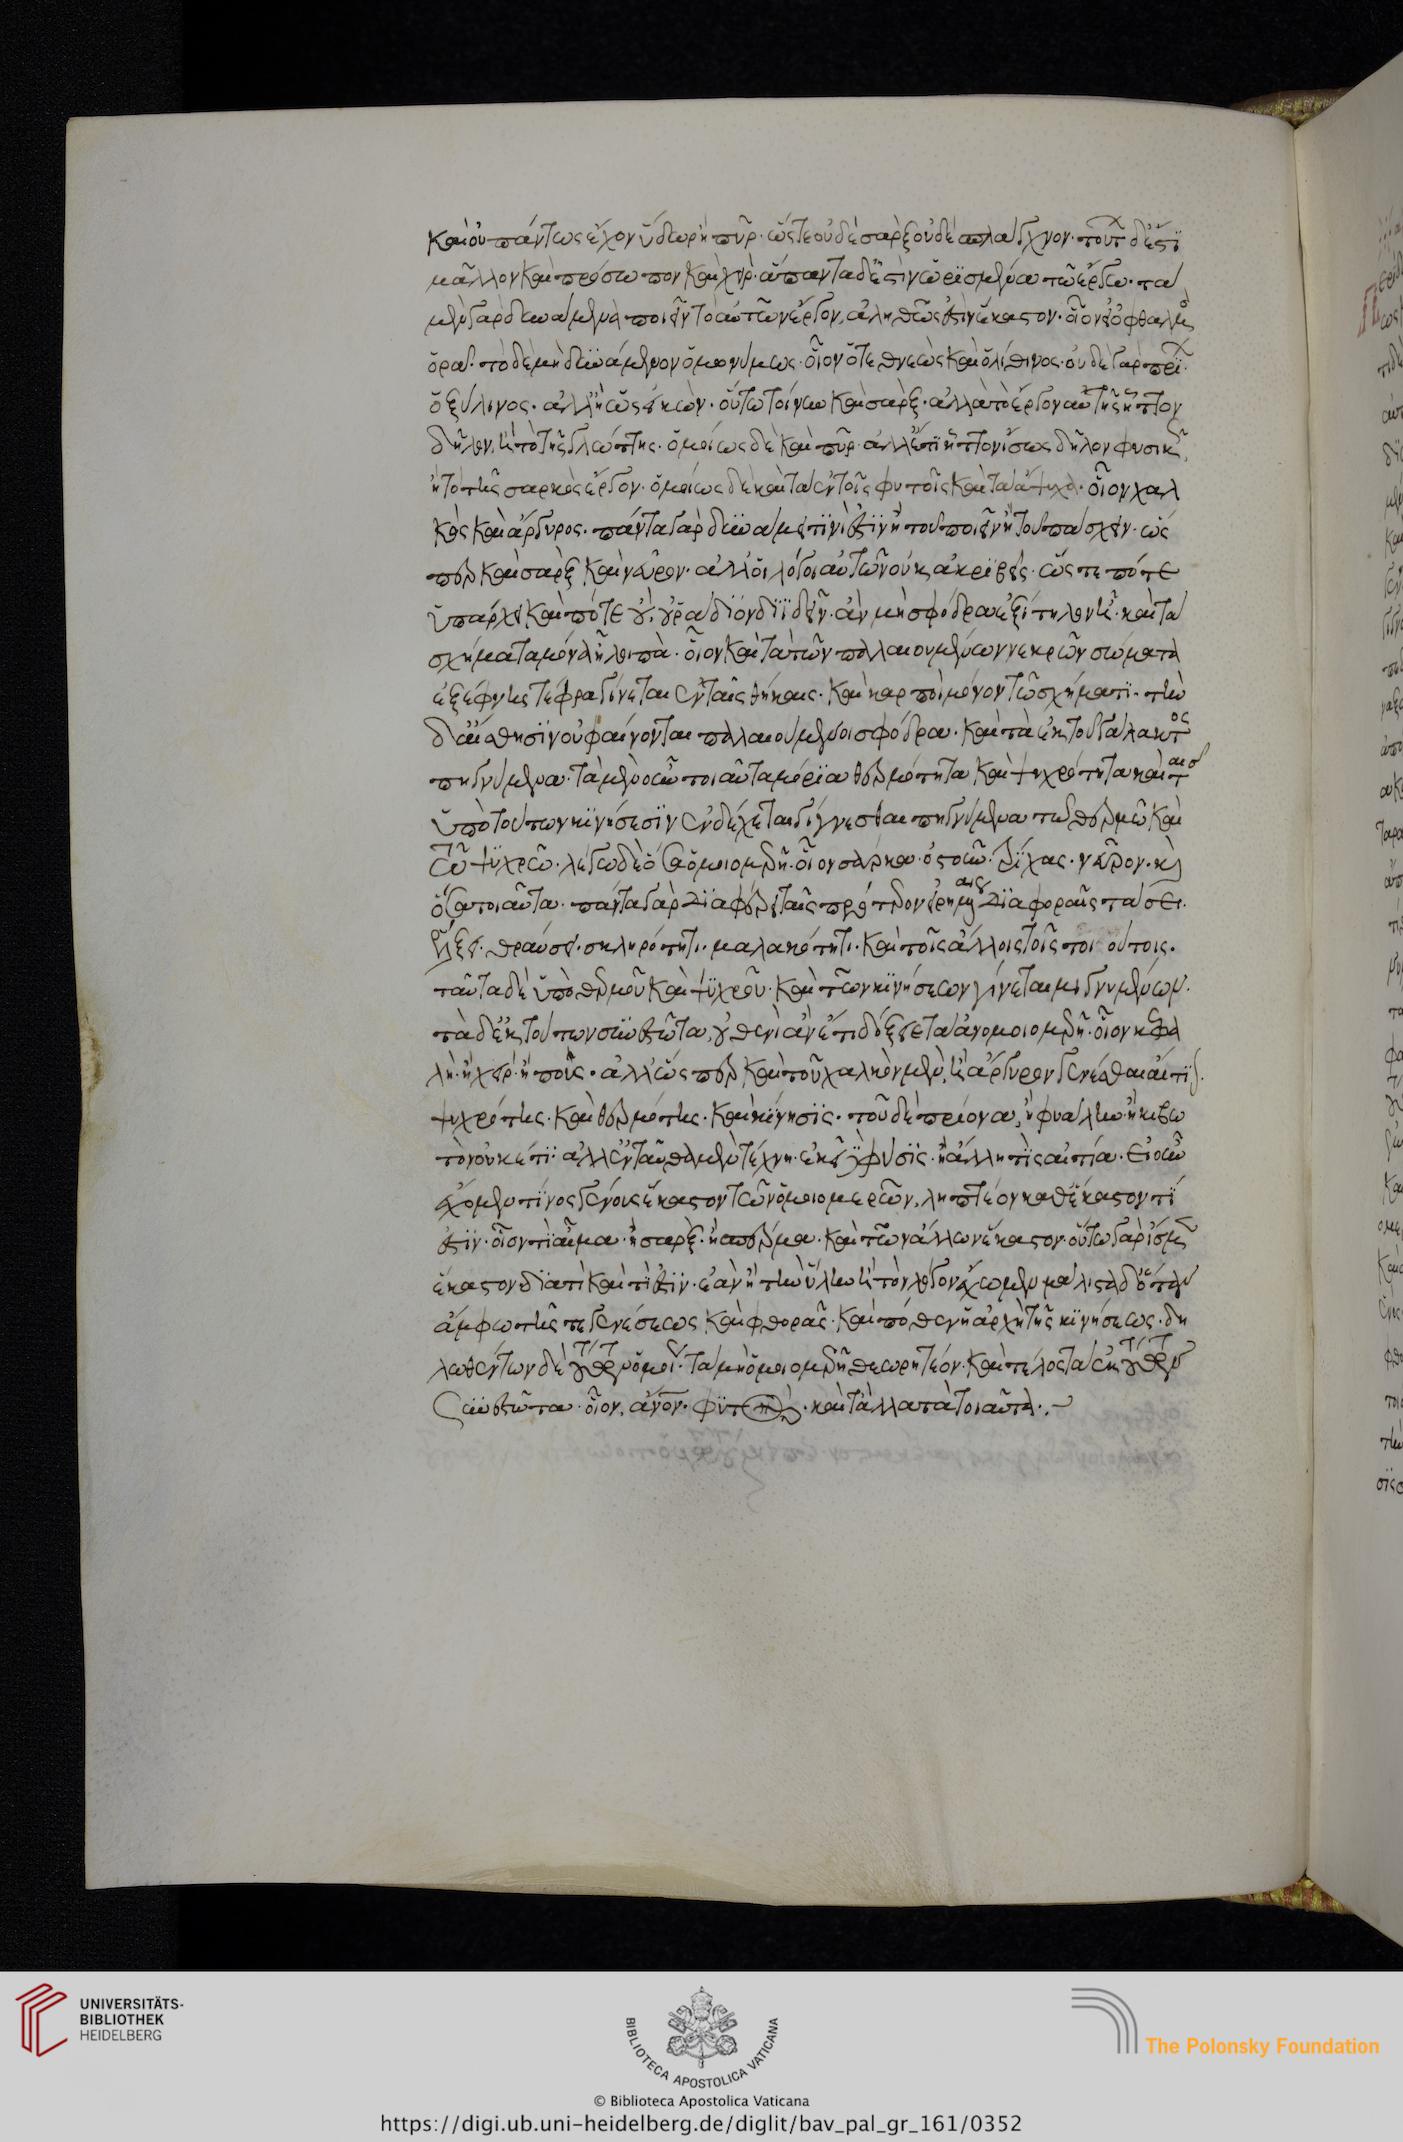 καὶ οὐ πάντως ἔχον ὕδωρ ἢ πῦρ· ὥστε οὐδὲ σὰρξ οὐδὲ σπλάγχνον· τούτ δέ ἔτι
μᾶλλον καὶ πρόσωπον καὶ χείρ· ἅπαντα δέ ἐστὶν ὡρισμένα τῶ ἔργω· τὰ
μὲν γὰρ δυνάμενα ποιεῖν τὸ αὑτῶν ἔργον, ἀληθῶς ἐστὶν ἕκαστον· οἷον εἰ ὀφθαλμὸς
ὁρᾶ· τὸ δὲ μὴ δυνάμενον ὁμωνύμως· οἷον ὁ τεθνεὼς καὶ ὁ λίθινος· οὐδὲ γὰρ πρί
ὁ ξύλινος· ἀλλ' ἢ ὡς εἰκών· οὕτω τοίνυν καὶ σάρξ· ἀλλὰ τὸ ἔργον αὐτῆς ἧττον
δῆλον, ἢ τὸ τῆς γλώττης· ὁμοίως δὲ καὶ πῦρ· ἀλλ' ἔτι ἧττον ἴσως δῆλον φυσικ
ἢ τὸ τῆς σαρκὸς ἔργον· ὁμοίως δὲ καὶ τὰ ἐν τοῖς φυτοῖς καὶ τὰ ἄψυχα· οἷον χαλ
κὸς καὶ ἄργυρος· πάντα γὰρ δυνάμει τινί ἐστιν ἢ τοῦ ποιεῖν ἢ τοῦ πάσχειν· ὥσ
περ καὶ σὰρξ καὶ νεῦρον· ἀλλ' οἱ λόγοι αὐτῶν οὐκ ἀκριβεῖς· ὥστε πότε
ὑπάρχει καὶ πότε οὔ, οὐ ῥάδιον διϊδεῖν· ἂν μὴ σφόδρα ἐξίτηλον εἶ· καὶ τὰ
σχήματα μόνα ἦ λοιπά· οἷον καὶ τὰ τῶν παλαιουμένων νεκρῶν σώματα
ἐξέφνης τέφρα γίνεται ἐν ταῖς θήκαις· καὶ καρποὶ μόνον τῶ σχήματι· τὴν
δ' αἴσθησιν οὐ φαίνονται παλαιούμενοι σφόδρα· καὶ τὰ ἐκ τοῦ γάλακτος
πηγνύμενα· τὰ μὲν οὖν τοιαῦτα μόρια θερμότητα καὶ ψυχρότητα καὶ ταισ
ὑπὸ τούτων κινήσεσιν ἐνδέχεται γίγνεσθαι πηγνύμενα τῶ θερμῶ καὶ
τῶ ψυχρῶ· λέγω δὲ ὅσα ὁμοιομερῆ· οἷον σάρκα· ὀστοῦν· τρίχας· νεῦρον· καὶ
ὅσα τοιαῦτα· πάντα γὰρ διαφέρει ταῖς πρότερον εἰρημέναις διαφοραῖς τάσει·
ἕλξει· θραύσει· σκληρότητι· μαλακότητι· καὶ τοῖς ἄλλοις τοῖς τοιούτοις·
ταῦτα δὲ ὑπὸ θερμοῦ καὶ ψυχροῦ· καὶ τῶν κινήσεων γίνεται μιγνυμένων·
τὰ δ' ἐκ τούτων συνεστῶτα, οὐθενὶ ἂν ἔτι δόξειε τὰ ἀνομοιομερῆ· οἷον κεφα
λὴ· ἢ χείρ· ἢ ποῦς· ἀλλ' ὥσπερ καὶ τοῦ χαλκὸν μὲν, ἢ ἄργυρον γενέσθαι αἰτία
ψυχρότης· καὶ θερμότης· καὶ κίνησις· τοῦ δὲ πρίονα, ἢ φιάλην ἢ κιβω
τὸν οὐκέτι· ἀλλ' ἐνταῦθα μὲν τέχνη· ἐκεῖ δὲ φύσις· ἢ ἄλλη τὶς αἰτία· εἰ οὖν
ἔχομεν τίνος γένους ἕκαστον τῶν ὁμοιομερῶν, ληπτέον καθ' ἕκαστον τί
ἐστιν· οἷον τί αἷμα· ἢ σάρξ· ἢ σπέρμα· καὶ τῶν ἄλλων ἕκαστον· οὕτω γὰρ ἴσμεν
ἕκαστον διατὶ καὶ τί ἐστιν· ἐὰν ἢ τὴν ὕλην ἢ τὸν λόγον ἔχωμεν μάλιστα δ' ὅταν
ἄμφω τῆς τε γενέσεως καὶ φθορᾶς· καὶ πόθεν ἡ ἀρχὴ τῆς κινήσεως· δη
λωθέντων δὲ τούτων ὁμοί· τὰ μὴ ὁμοιομερῆ θεωρητέον· καὶ τέλος τὰ ἐκ τούτων
συνεστῶτα· οἷον, ἄνον· φυτ · καὶ τἄλλα τὰ τοιαῦτα·
UNIVERSITÄTS-
BIBLIOTHEK
HEIDELBERG
BIBLIOTECA APOSTOLICA VATICANA
© Biblioteca Apostolica Vaticana
The Polonsky Foundation
https://digi.ub.uni-heidelberg.de/diglit/bav_pal_gr_161/0352